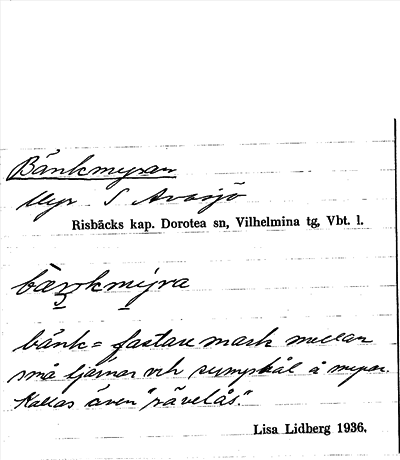 Bänkmyran
Myr S Avasjö
Risbäcks kap. Dorotea sn, Vilhelmina tg, Vbt. l.
bäŋkmýra
bänk = fastare mark mellan
små tjärnar och sumphål å myrar.
Kallas även "rävelås".
Lisa Lidberg 1936.